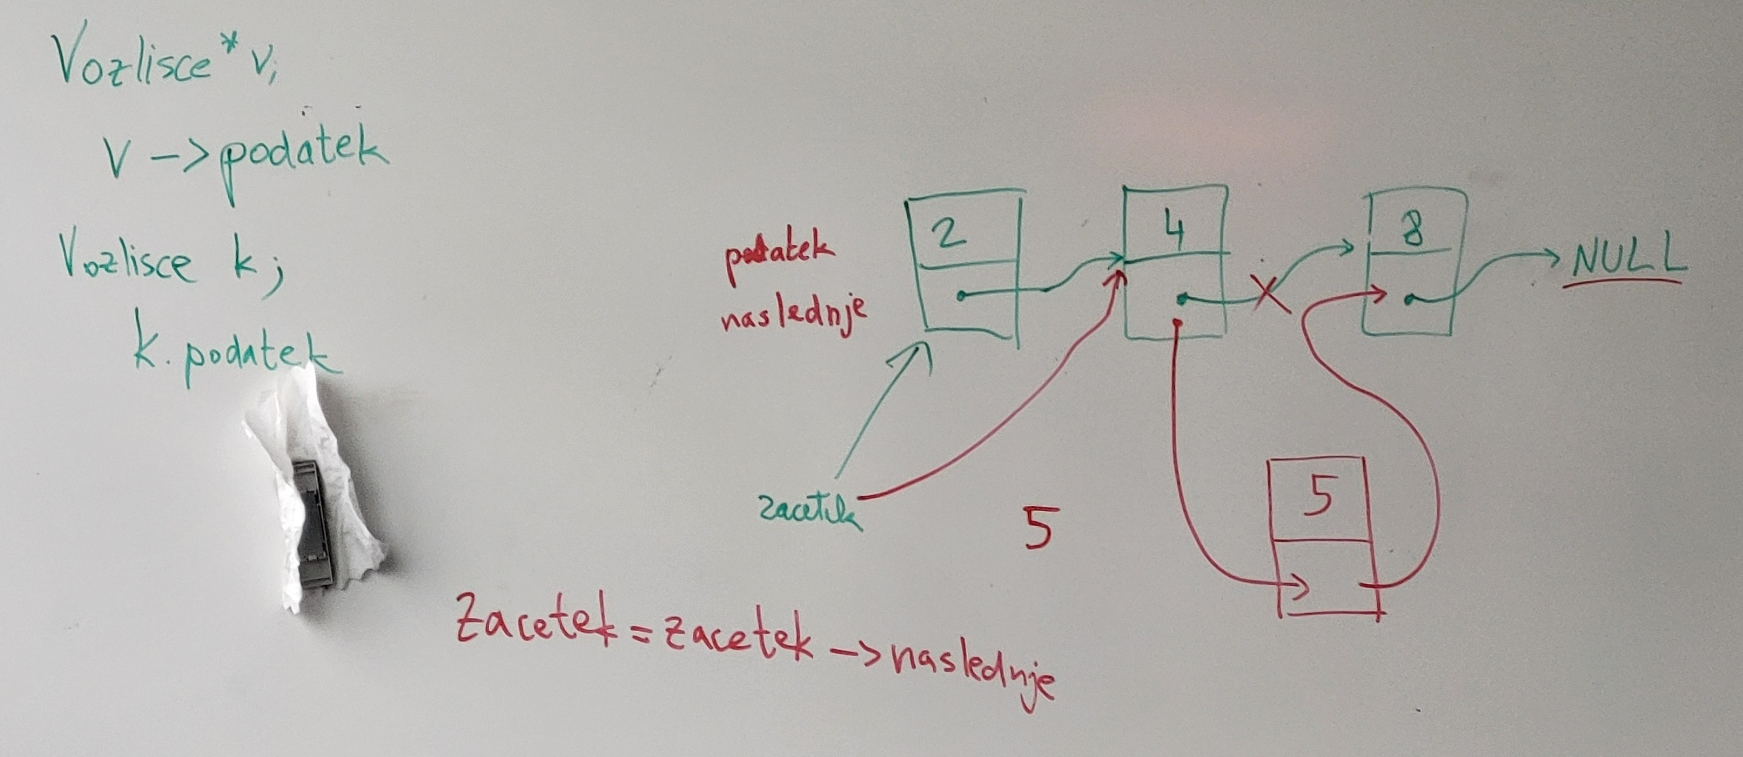 Vozlisce* v;
v -> podatek
Vozlisce k;
k. podatek
podatek
naslednje
2
4
8
NULL
zacetek
5
5
Zacetek = zacetek -> naslednje